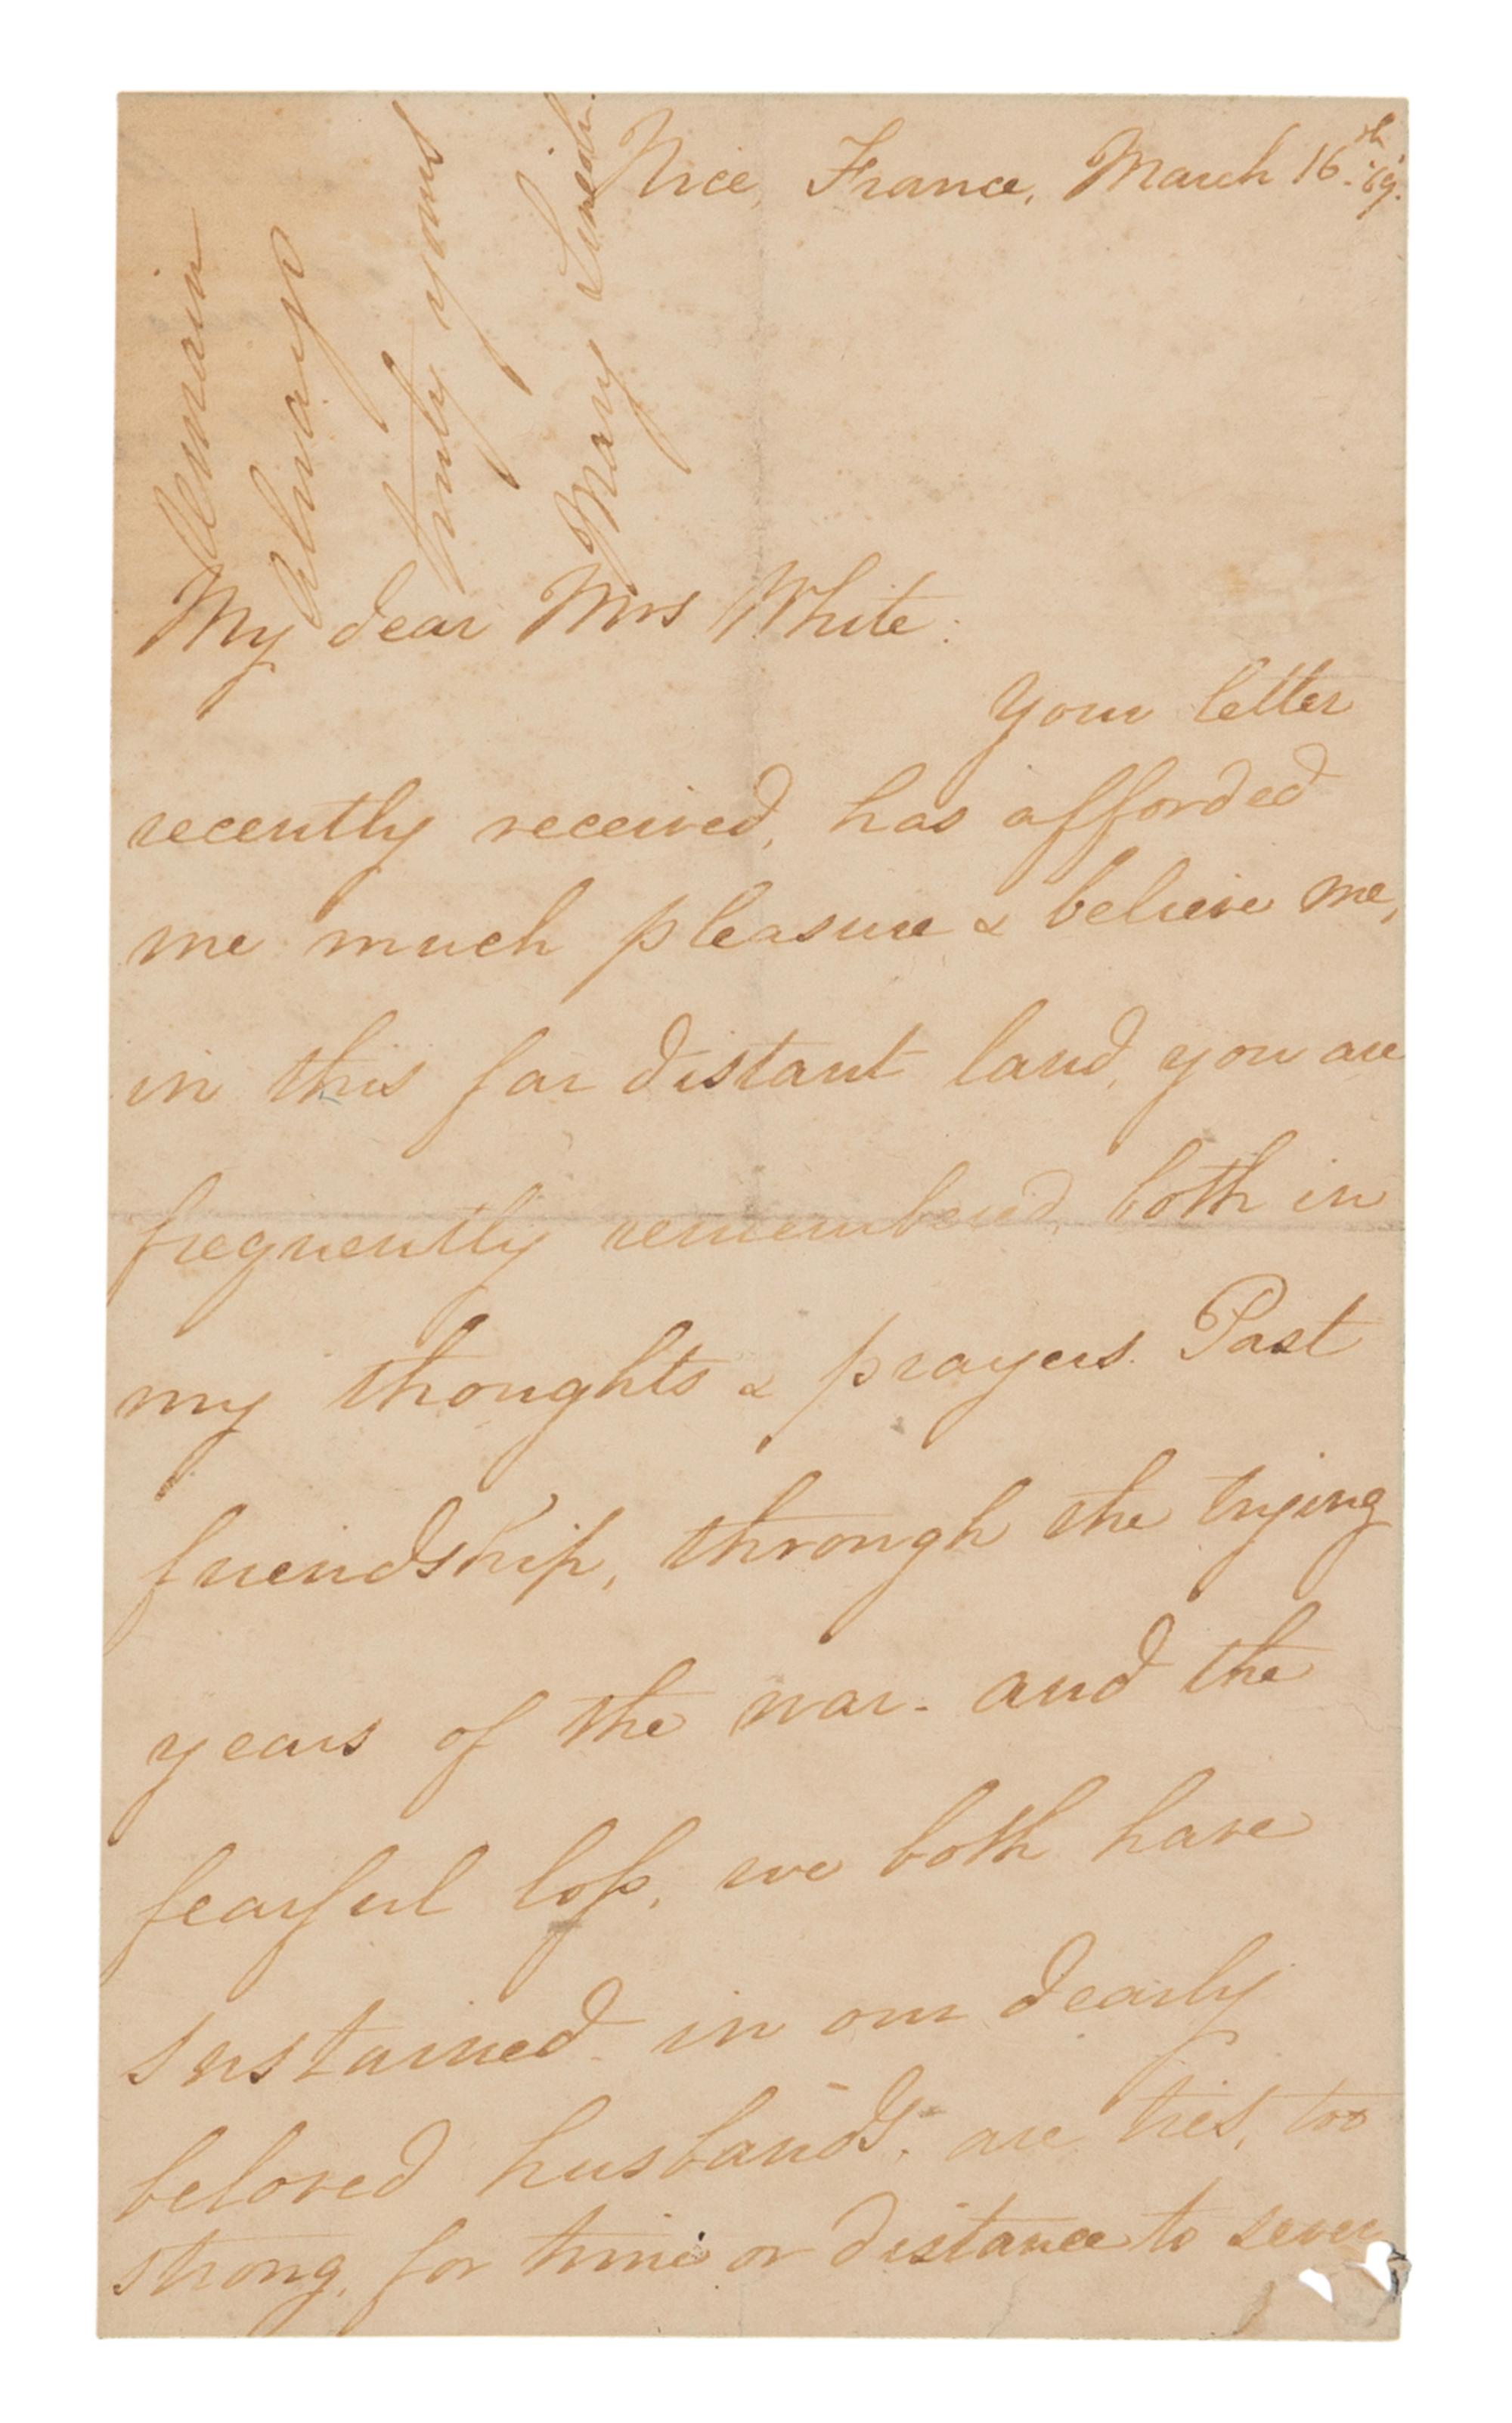 Nice, France, March 16th '69.
My dear Mrs White:
Your letter
recently received, has afforded
me much pleasure & believe me,
in this far distant land, you are
frequently remembered, both in
my thoughts & prayers. Past
friendship, through the trying
years of the war - and the
fearful loss, we both have
sustained - in our dearly
beloved husbands, are ties, too
strong, for time or distance to sever
remain
Always
truly yours
Mary Lincoln